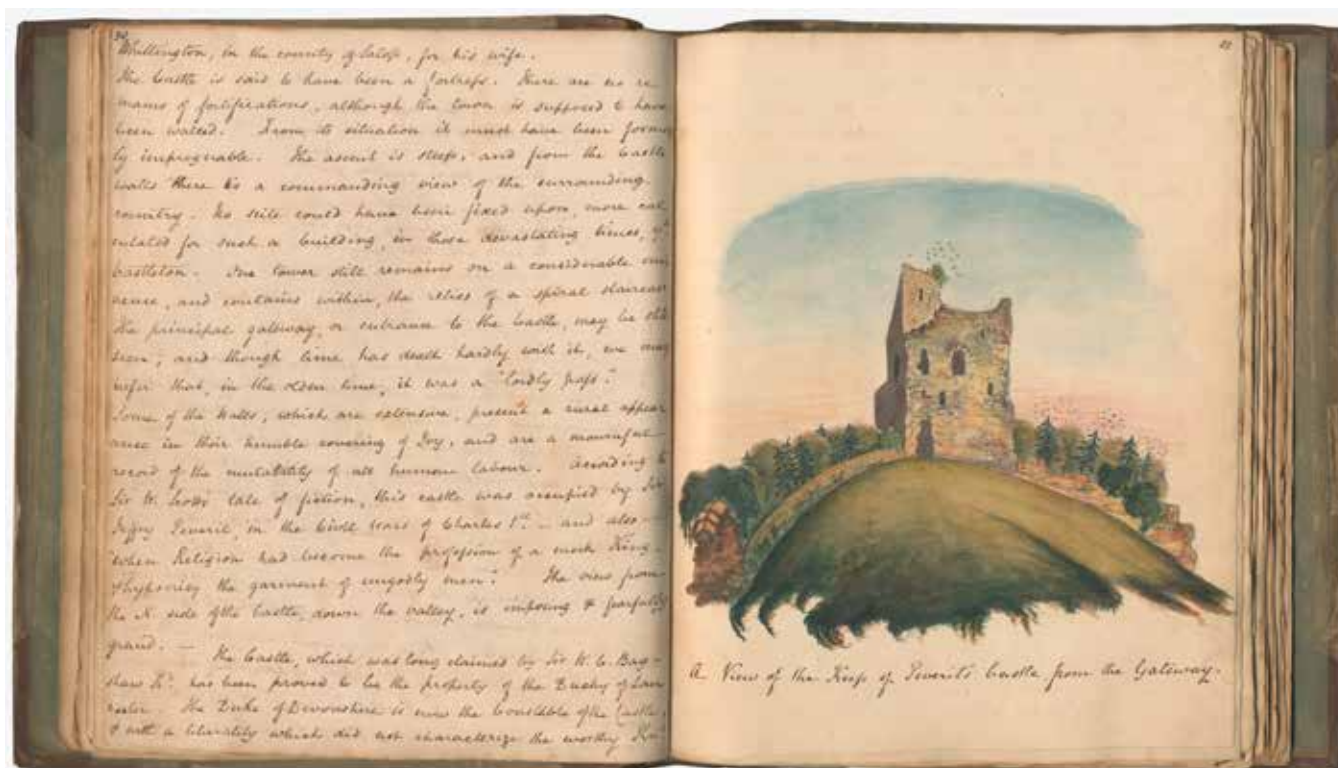 Whittington, in the county of Salop, for his wife.
The Castle is said to have been a fortress. There are no re
mains of fortifications, although the town is supposed to have
been walled. From its situation it must have been former
ly impregnable. The ascent is steep, and from the Castle
walls there is a commanding view of the surrounding
country. No scite could have been fixed upon, more cal
culated for such a building, in those devastating times, yn
Castleton. One tower still remains on a considerable emi
nence, and contains within, the relics of a spiral staircase
The principal gateway, or entrance to the Castle, may be still
seen; and though time has dealt hardly with it, we may
infer that, in the olden time, it was a "lordly pass."
Some of the Walls, which are extensive, present a rural appear
ance in their humble covering of Ivy, and are a mournful
record of the mutability of all human labour. Acording to
Sir W. Scotts tale of fiction, this castle was occupied by Sir
Peveril, in the Civil wars of Charles 1st. – and also –
"when Religion had become the profession of a mock King.
& hypocrisy the garment of ungodly men." The view from
the N. side of the Castle, down the valley, is imposing & fearfully
grand. —
The Castle, which was long claimed by Sir W. C. Bag-
shaw Kt. has been proved to be the property of the Duchy of Lan
caster. The Duke of Devonshire is now the Constable of the Castle,
& with a liberality which did not characterize the worthy Knt
A View of the Keep of Peveril's Castle from the Gateway.